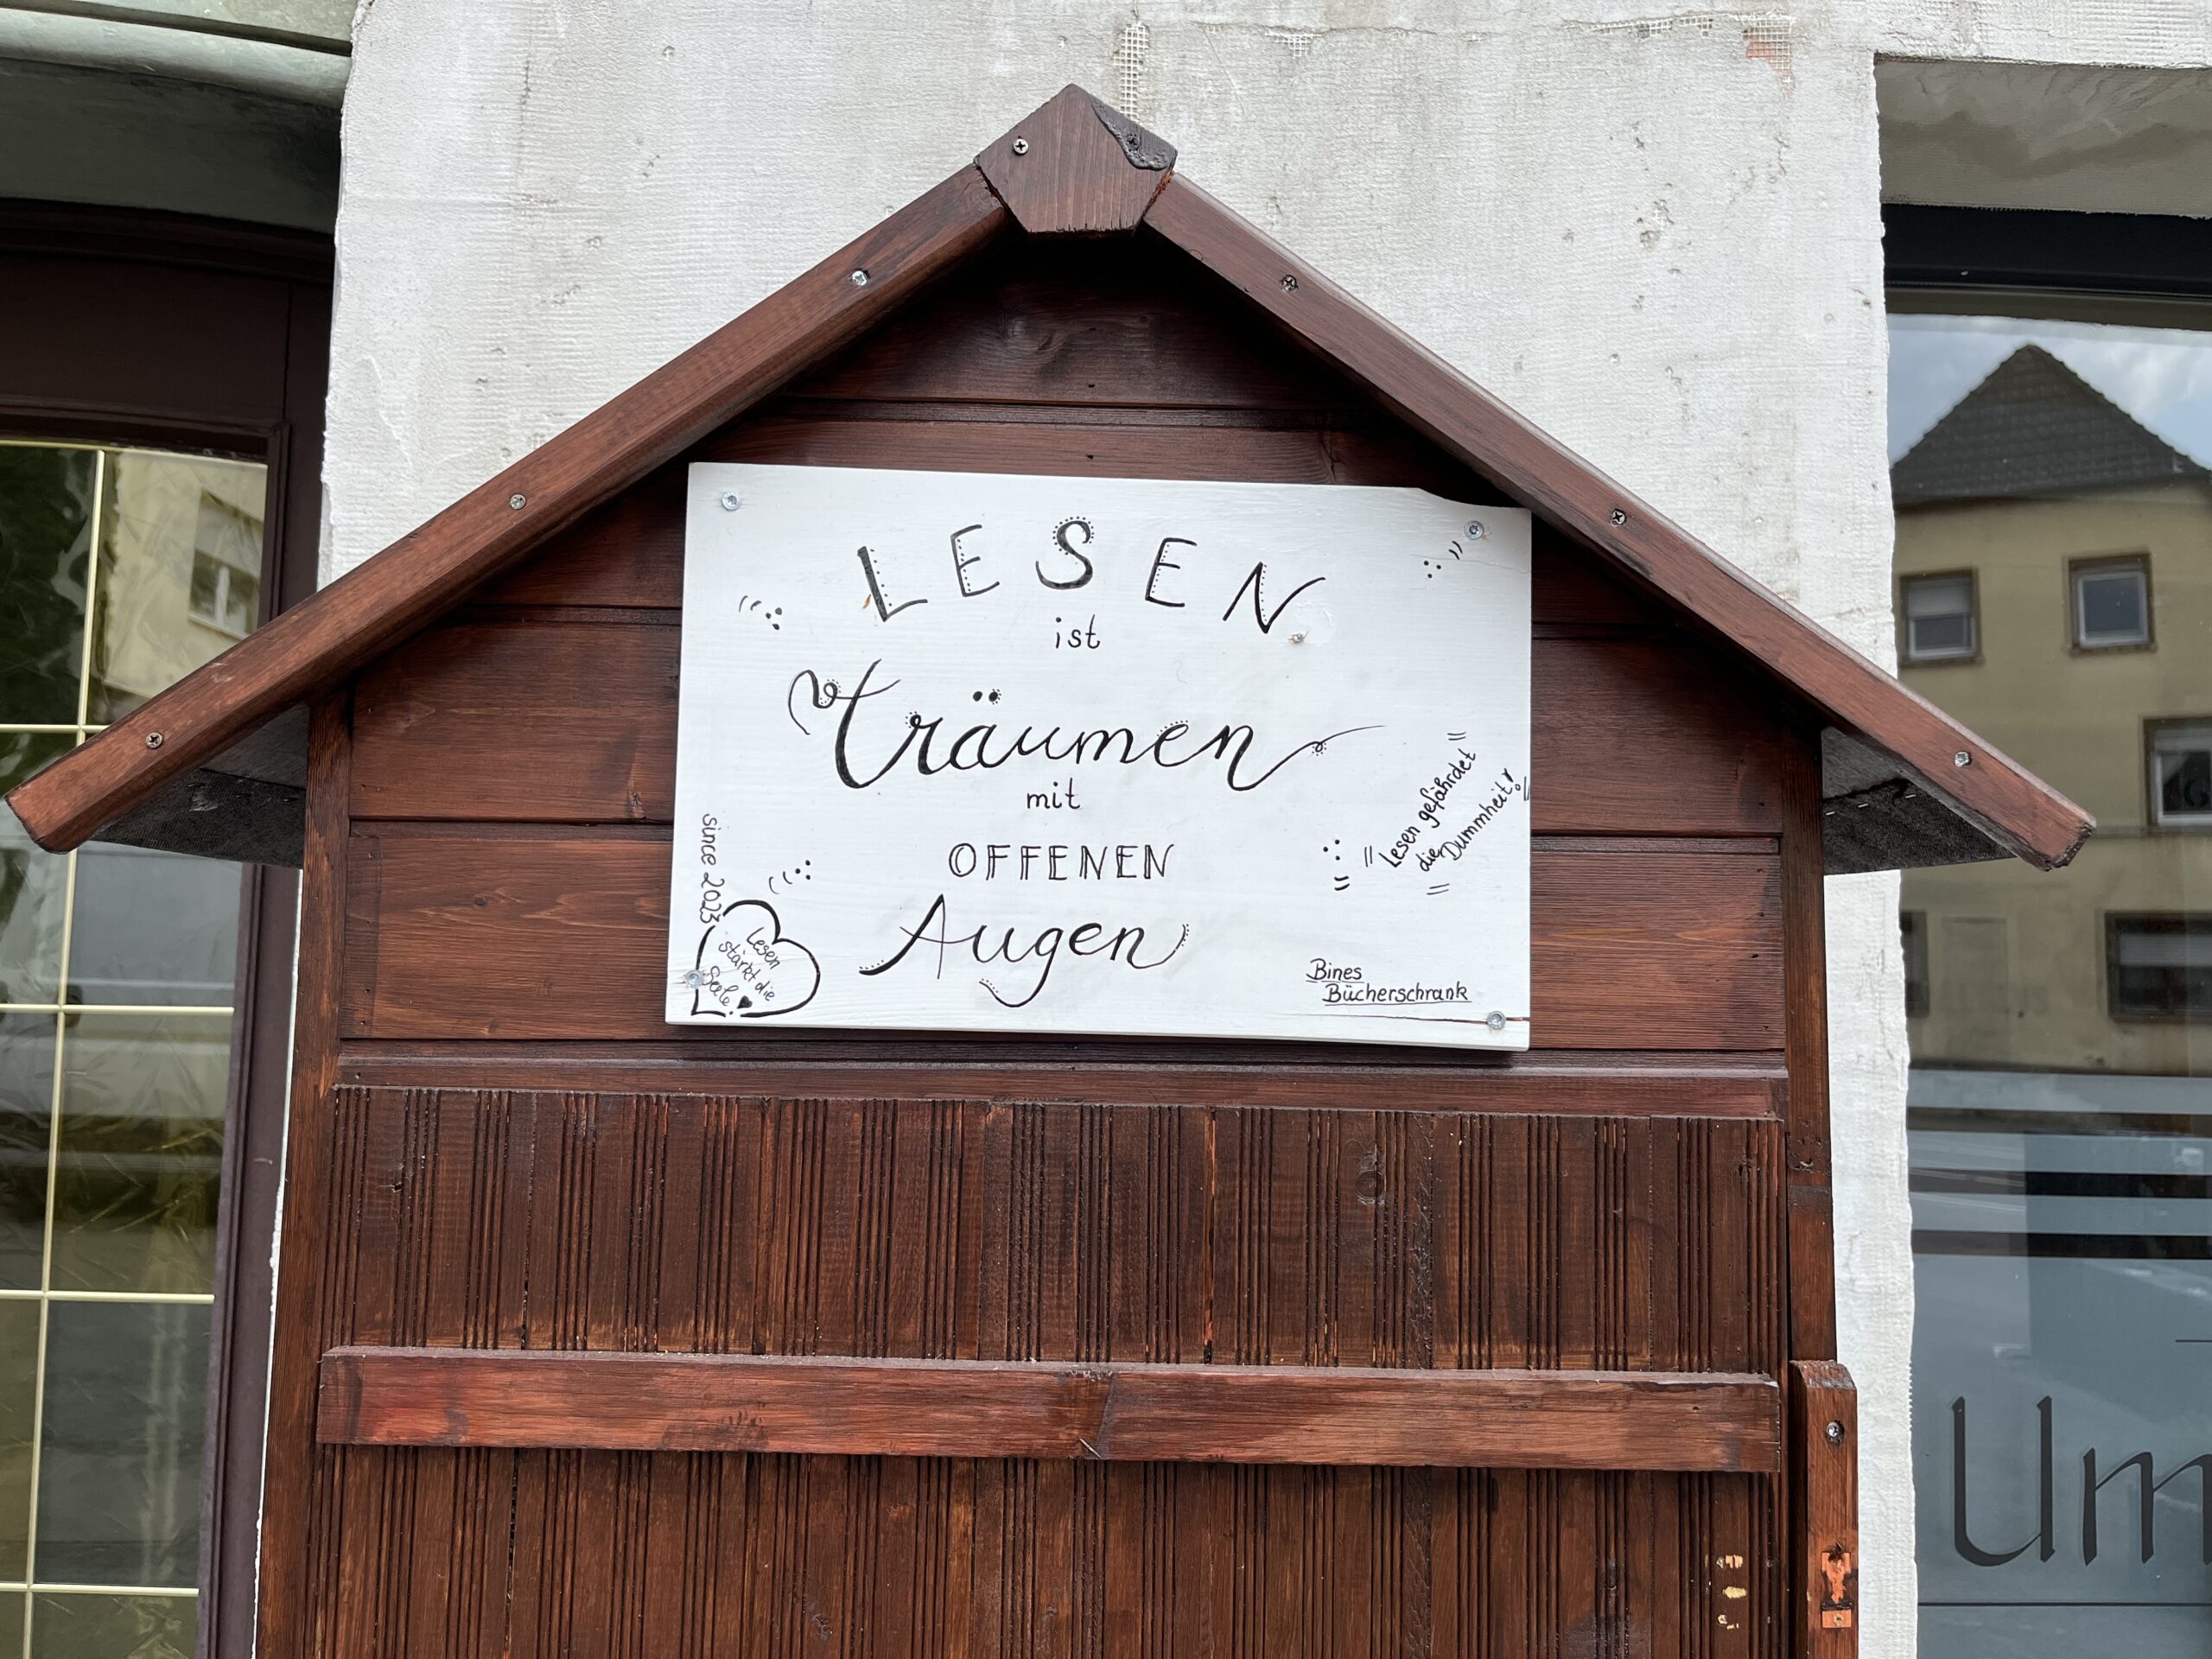 LESEN
ist
träumen
mit
OFFENEN
Augen
"Lesen gefährdet
die Dummheit!"
since 2023
Lesen
stärkt die
Seele
Bines
Bücherschrank
Um